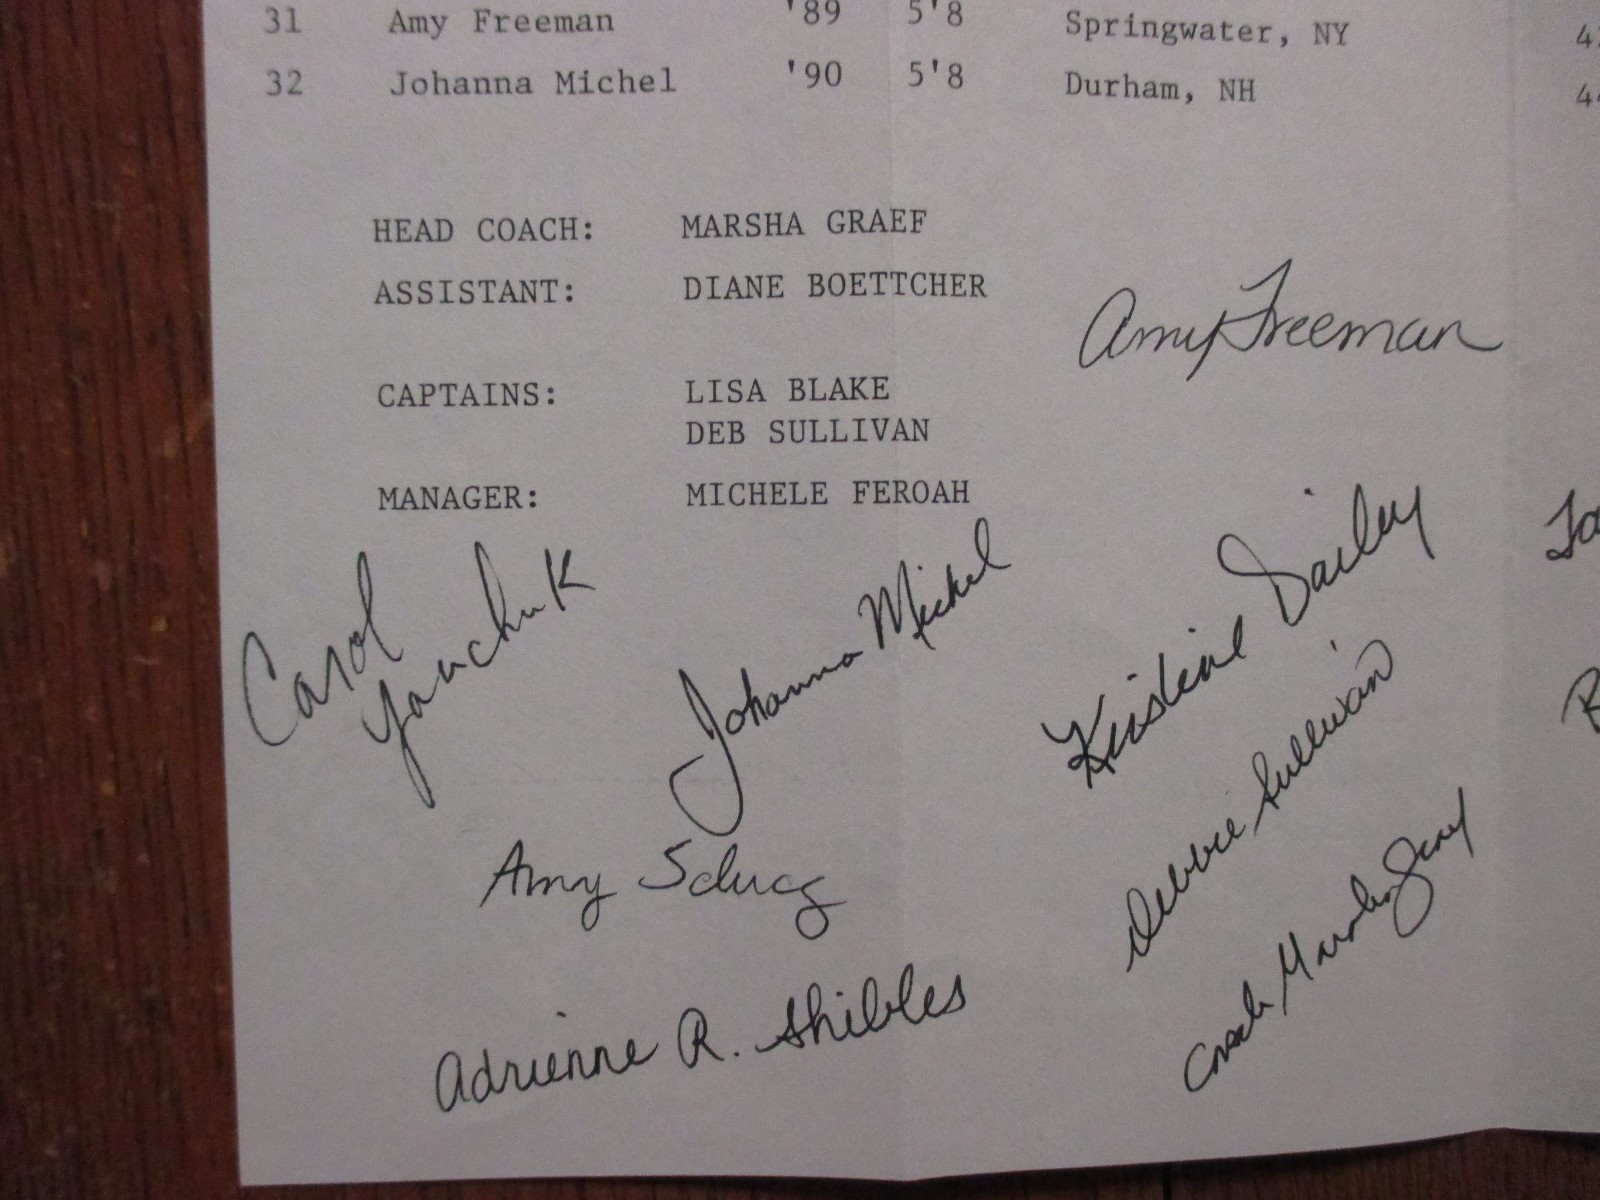 31 Amy Freeman '89 5'8 Springwater, NY
32 Johanna Michel '90 5'8 Durham, NH
HEAD COACH: MARSHA GRAEF
ASSISTANT: DIANE BOETTCHER
Amy Freeman
CAPTAINS: LISA BLAKE
DEB SULLIVAN
MANAGER: MICHELE FEROAH
Carol
Yanchuk
Johanna Michel
Kristine Dailey
Debbie Sullivan
Amy
Coach Marsha Graef
Adrienne R. Shibles